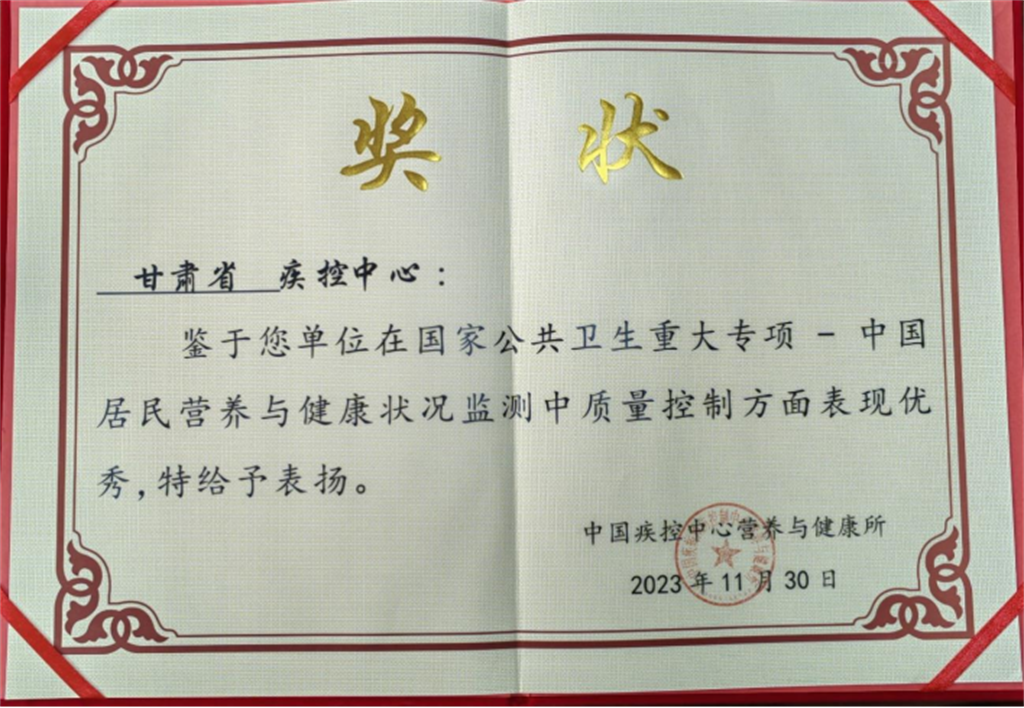 奖状
甘肃省 疾控中心：
鉴于您单位在国家公共卫生重大专项－中国
居民营养与健康状况监测中质量控制方面表现优
秀,特给予表扬。
中国疾控中心营养与健康所
2023年11月30日